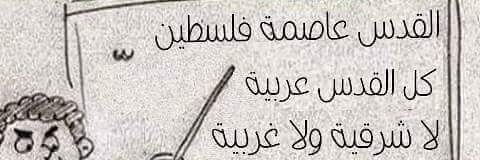 القدس عاصمة فلسطين
كل القدس عربية
لا شرقية ولا غربية